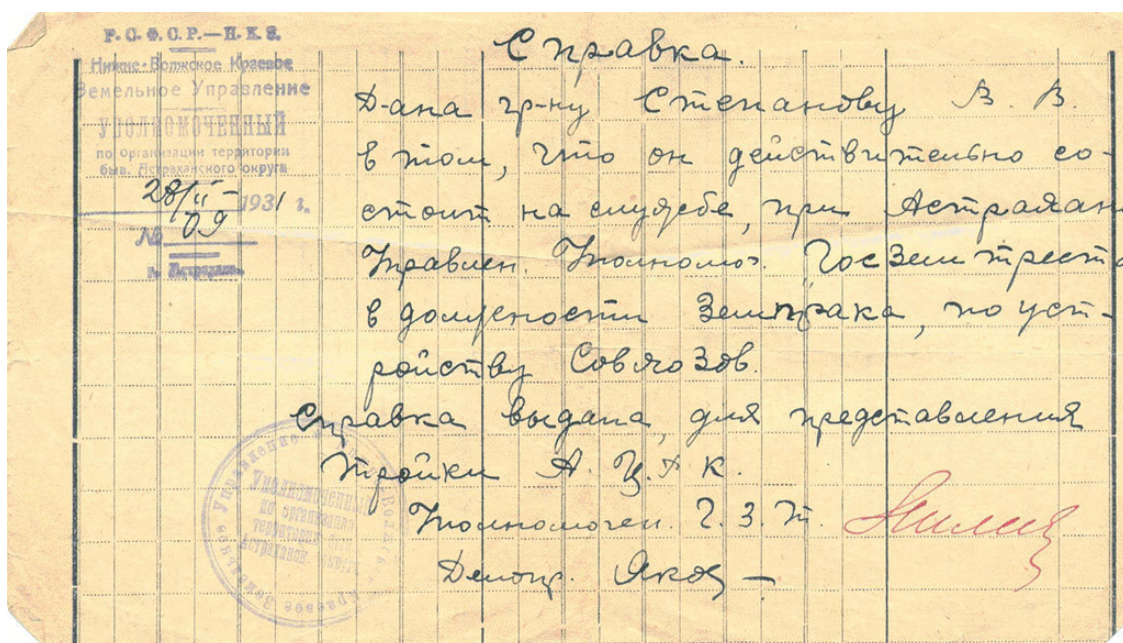 Р.С.Ф.С.Р.—Н.К.З.
Нижне-Волжское Краевое
Земельное Управление
УПОЛНОМОЧЕННЫЙ
по организации территории
быв. Астраханского округа
28/II - 1931 г.
№ 09
г. Астрахань.
Справка.
Дана гр-ну Степанову В. В.
в том, что он действительно со-
стоит на службе, при Астрахан
Управлен. Уполномоч. Госземтреста
в должности Земпрака, по уст-
ройству Совхозов.
Справка выдана, для представления
Тройки А.
Уполномочен. Г.З.Т.
Делопр.
Уполномоченный
по организации
территории быв.
Астраханск. округа